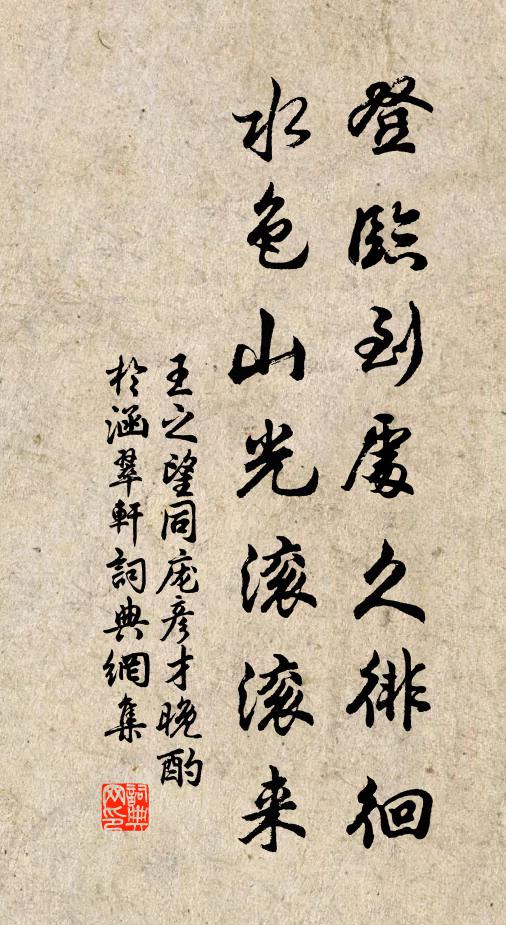 登臨到處久徘徊
水色山光滚滚来
王之望同庞彦才晚酌
於涵翠軒詞典網集
詞典
网印